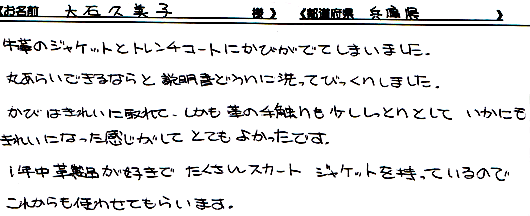 《お名前 大石久美子 様》 《都道府県 兵庫県 》
牛革のジャケットとトレンチコートにかびがでてしまいました。
丸あらいできるならと説明書どうりに洗ってびっくりしました。
かびはきれいに取れて、しかも革の手触りも少ししっとりとして いかにも
きれいになった感じがして とてもよかったです。
1年中革製品が好きで たくさんスカート ジャケットを持っているので
これからも使わせてもらいます。